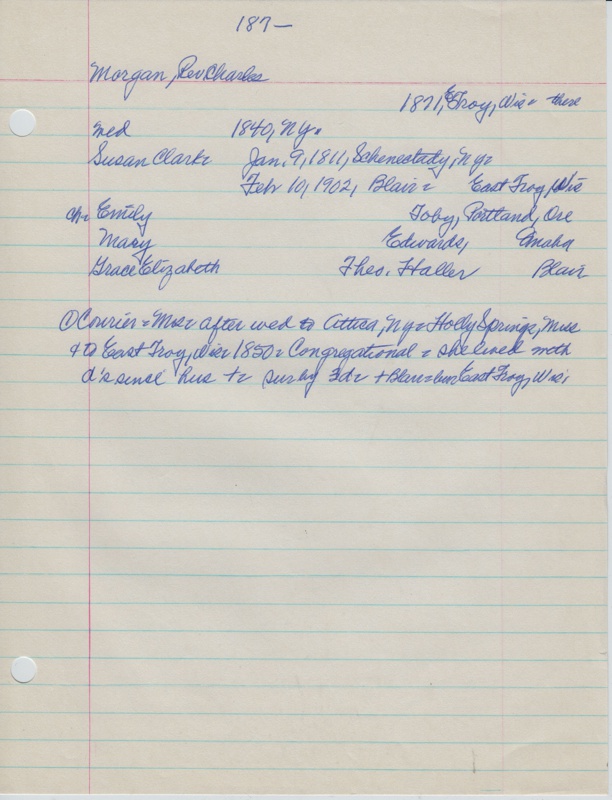 187-
Morgan, Rev. Charles
1871, E Troy, Wis= there
wed 1840, NY=
Susan Clark= Jan. 9, 1811, Schenectady, NY=
Feb 10, 1902, Blair= East Troy, Wis
ch= Emily Toby, Portland, Ore
Mary Edwards, Omaha
Grace Elizabeth Theo. Haller Blair
① Courier= Mrs= after wed to Attica, NY= Holly Springs, Miss
+ to East Troy, Wis= 1850= Congregational = she lived with
d's since hus += surby 3d= + Blair= bur East Troy, Wis,